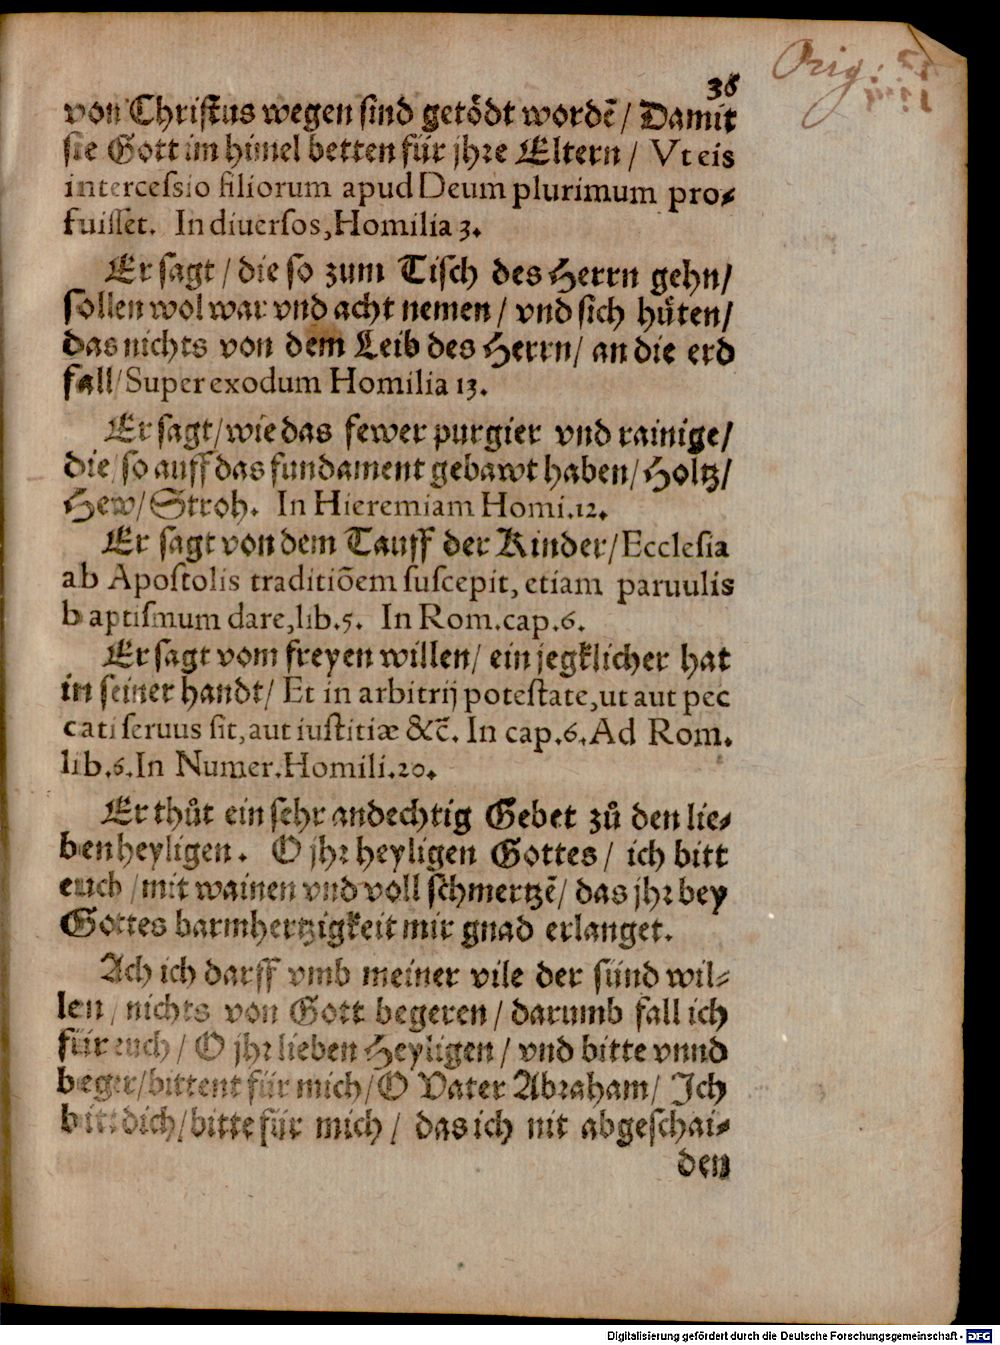 Orig:
36
von Christus wegen sind getödt wordē / Damit
sie Gott im himel betten für jhre Eltern / Vt eis
intercessio filiorum apud Deum plurimum pro-
fuisset. In diuersos, Homilia 3.
Er sagt / die so zum Tisch des Herrn gehn /
sollen wol war vnd acht nemen / vnd sich hüten /
das nichts von dem Leib des Herrn / an die erd
fall / Super exodum Homilia 13.
Er sagt / wie das fewer purgier vnd rainige /
die / so auff das fundament gebawt haben / Holtz /
Hew / Stroh. In Hieremiam Homi. 12.
Er sagt von dem Tauff der Kinder / Ecclesia
ab Apostolis traditiōem suscepit, etiam paruulis
baptismum dare, lib. 5. In Rom. cap. 6.
Er sagt vom freyen willen / ein jegklicher hat
in seiner handt / Et in arbitrij potestate, ut aut pec
cati seruus sit, aut iustitiæ &c̄. In cap. 6. Ad Rom.
lib. 6. In Numer. Homili. 20.
Er thůt ein sehr andechtig Gebet zů den lie-
ben heyligen. O jhr heyligen Gottes / ich bitt
euch / mit wainen vnd voll schmertzē / das jhr bey
Gottes barmhertzigkeit mir gnad erlanget.
Ach ich darff vmb meiner vile der sünd wil-
len / nichts von Gott begeren / darumb fall ich
für euch / O jhr lieben Heyligen / vnd bitte vnnd
beger / bittent für mich / O Vater Abraham / Ich
bitt dich / bitte für mich / das ich nit abgeschai-
den
Digitalisierung gefördert durch die Deutsche Forschungsgemeinschaft - DFG